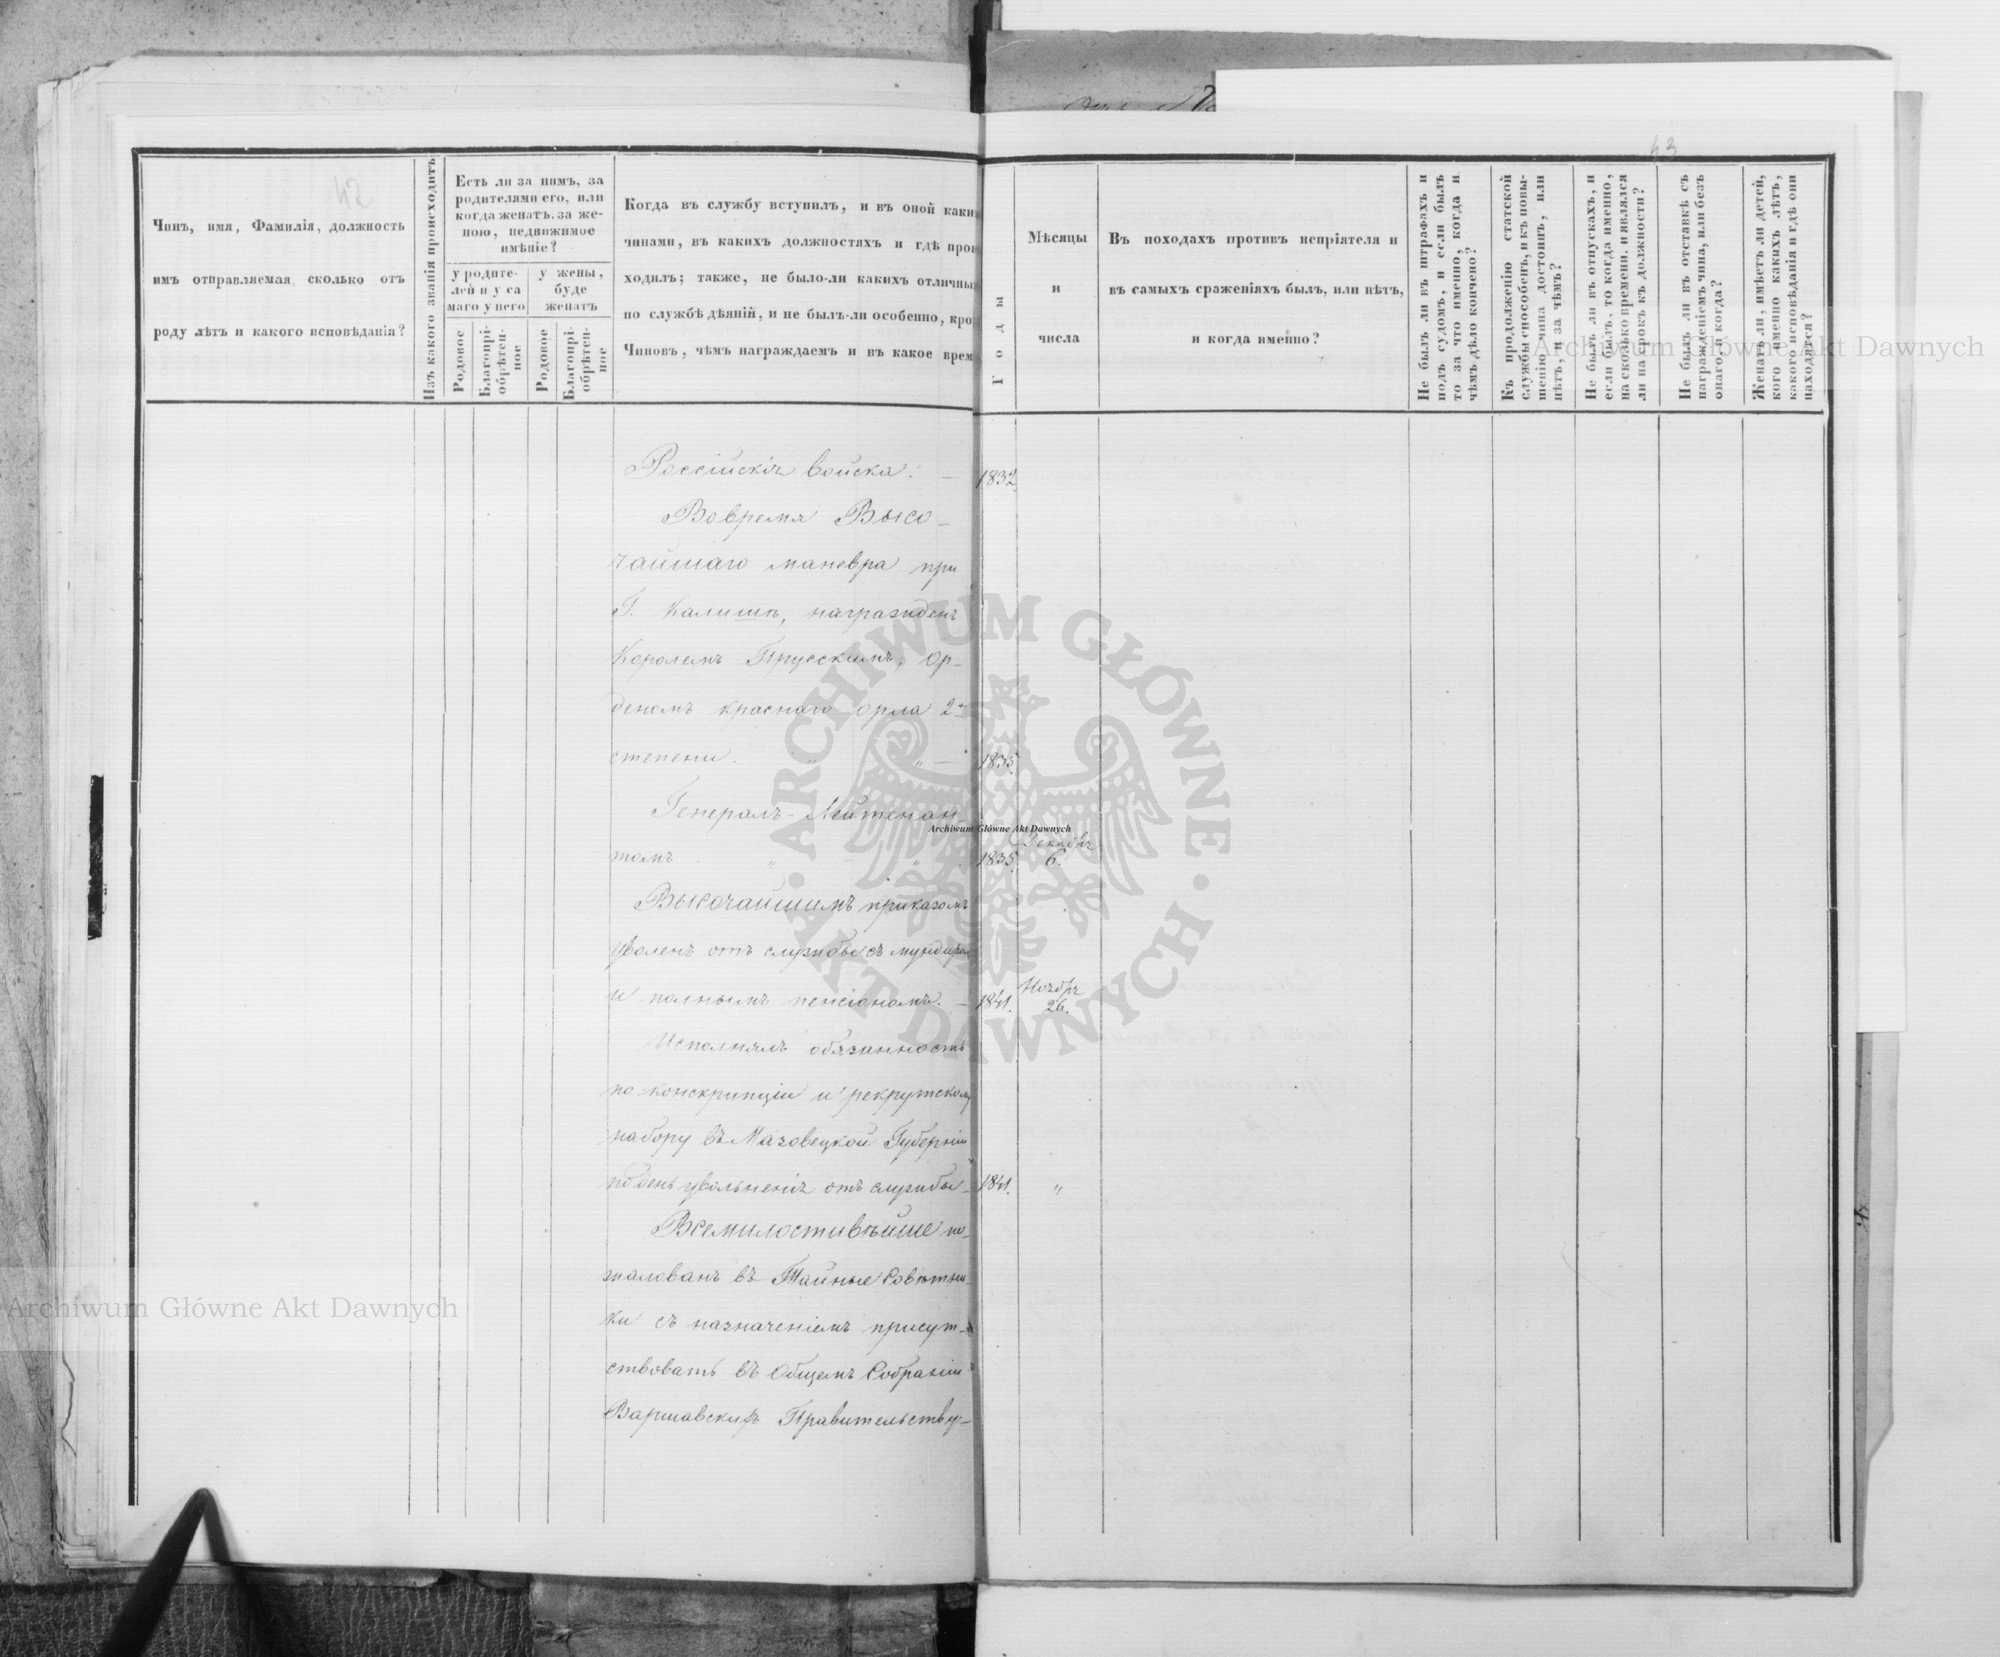 42
43
Чинъ, имя, Фамилія, должность
имъ отправляемая, сколько отъ
роду лѣтъ и какого исповѣданія?
Изъ какого званія происходитъ
Есть ли за нимъ, за
родителями его, или
когда женатъ, за же-
ною, недвижимое
имѣніе?
у родите-
лей и у са
маго у него
у жены,
буде
женатъ
Родовое
Благопрі-
обрѣтен-
ное
Родовое
Благопрі-
обрѣтен-
ное
Когда въ службу вступилъ, и въ оной каки
чинами, въ какихъ должностяхъ и гдѣ про
ходилъ; также, не было-ли какихъ отличны
по службѣ дѣяній, и не былъ-ли особенно, кро
Чиновъ, чѣмъ награждаемъ и въ какое врем
Годы
Мѣсяцы
и
числа
Въ походахъ противъ непріятеля и
въ самыхъ сраженіяхъ былъ, или нѣтъ,
и когда именно?
Не былъ ли въ штрафахъ и
подъ судомъ, и если былъ
то за что именно, когда и
чѣмъ дѣло кончено?
Къ продолженію статской
службы способенъ, и къ повы-
шенію чина достоинъ, или
нѣтъ, и за чѣмъ?
Не былъ ли въ отпускахъ, и
если былъ, то когда именно,
на сколько времени, и явился
ли на срокъ къ должности?
Не былъ ли въ отставкѣ съ
награжденіемъ чина, или безъ
онаго, и когда?
Женатъ ли, имѣетъ ли детей,
кого именно какихъ лѣтъ,
какого исповѣданія и гдѣ они
находятся?
Россійскія войска. — 1832,
Вовремя Высо-
чайшаго маневра при
Г. Калишѣ, награжденъ
Королемъ Прусскимъ, ор-
деномъ краснаго орла 2й
степени. " " — 1835.
Генералъ-Лейтенан
томъ " — " 1835. Декабрь 6.
Высочайшимъ приказомъ
уволенъ отъ службы съ мундиром
и полнымъ пенсіономъ. — 1841. Ноябрь 26.
Исполнялъ обязанность
по конскрипціи и рекрутскому
набору въ Мазовецкой Губерніи
по день увольненія отъ службы — 1841. "
Всемилостивѣйше по-
жалованъ въ Тайные Совѣтни-
ки съ назначеніемъ присут-
ствовать въ Общемъ Собраніи
Варшавскихъ Правительству-
Archiwum Główne Akt Dawnych
Archiwum Główne Akt Dawnych
Archiwum Główne Akt Dawnych
ARCHIWUM GŁÓWNE AKT DAWNYCH